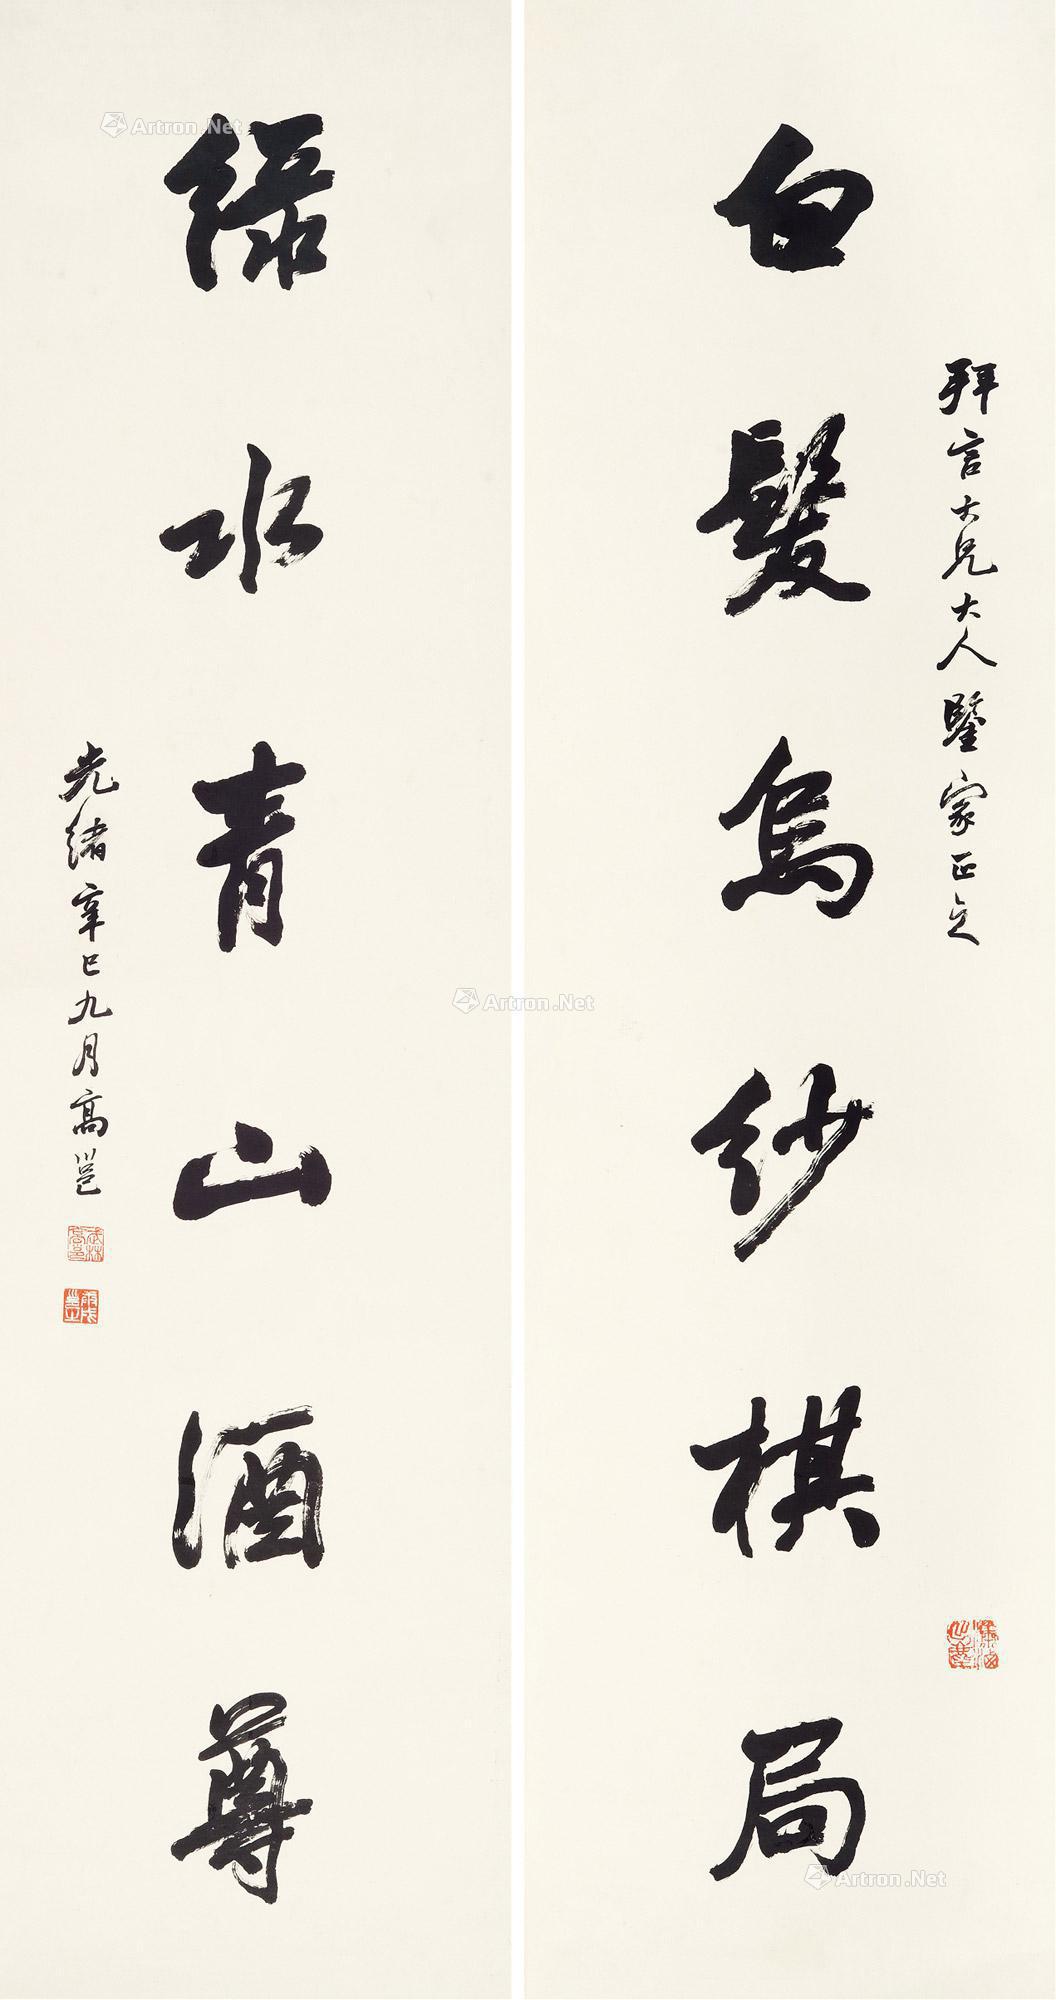 白髮烏紗棋局
拜言大兄大人鑒家正之
綠水青山酒尊
光緒辛巳九月高邕
Artron.Net
Artron.Net
Artron.Net